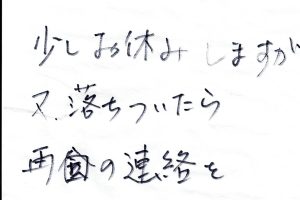 少しお休みしますが
又、落ちついたら
再の連絡を